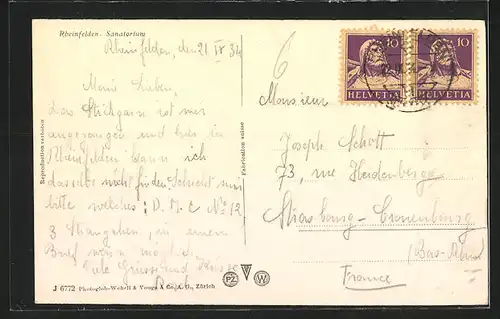 Rheinfelden. Sanatorium
Rheinfelden, den 21 IV 34
Meine Lieben,
Das Stickgarn ist mir
ausgegangen und hier in
Rheinfelden kann ich
dasselbe nicht finden. Schickt mir
bitte welches: D.M.C No 12
3 Strangchen, in einem
Brief wenn möglich.
Viele Grüsse und Küsse
Reproduction verboten
Fabrication suisse
J 6772 Photoglob-Wehrli & Vouga & Co., A. G., Zürich
PZ W
6
10 10
HELVETIA HELVETIA
Monsieur
Joseph Schott
73, rue
Strasbourg-Cronenbourg
(Bas-Rhin)
France